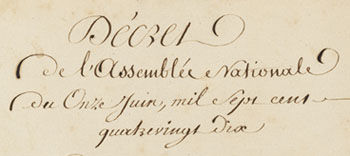 Décret
de l'Assemblée Nationale
du Onze Juin, mil Sept cent
quatrevingt Dix